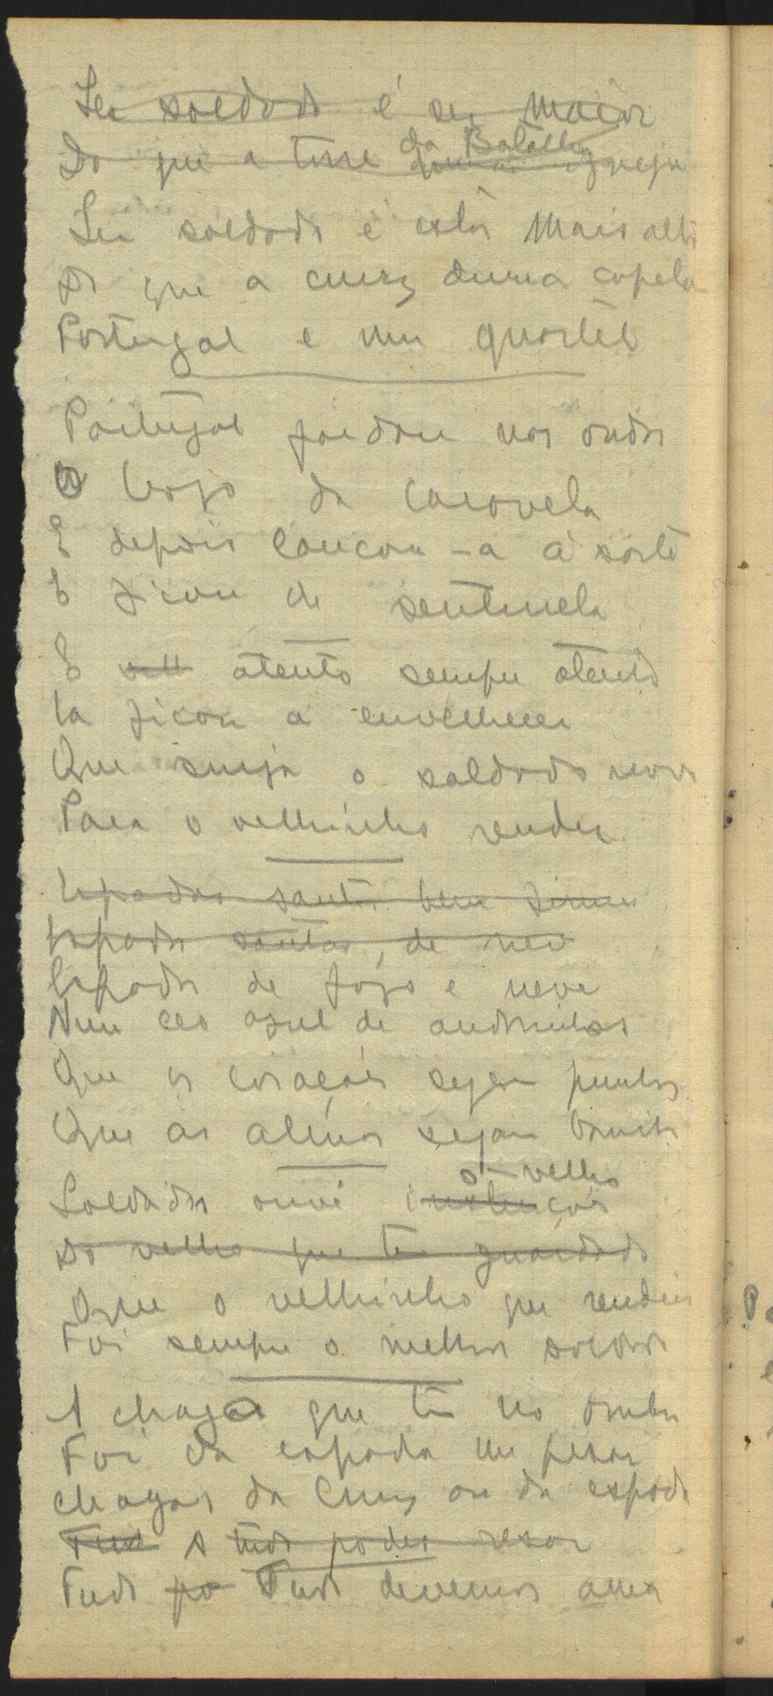 Ser soldado é ser maior
Do que a torre da Batalha igreja
Ser soldado é estar mais alto
Do que a cruz duma capela
Portugal é um quartel
Portugal gordou nas ondas
O bojo da caravela
E depois lançou-a à sorte
E ficou de sentinela
E atento sempre atento
La ficou a envelhecer
Que surja o soldado novo
Para o velhinho render
Espadas santas bem firmes
Espadas santas, de neve
Espadas de fogo e neve
Num ceo azul de andorinhas
Que os corações sejam pombas
Que as almas sejam bonitas
o velho
Soldados ouvi instruções
Do velho que tem guardado
Que o velhinho que rendeis
Foi sempre o melhor soldado
A chaga que tem no ombro
Foi da espada lhe pesar
Chagas da Cruz ou da espada
A tudo poder resar
Tudo Tudo devemos amar